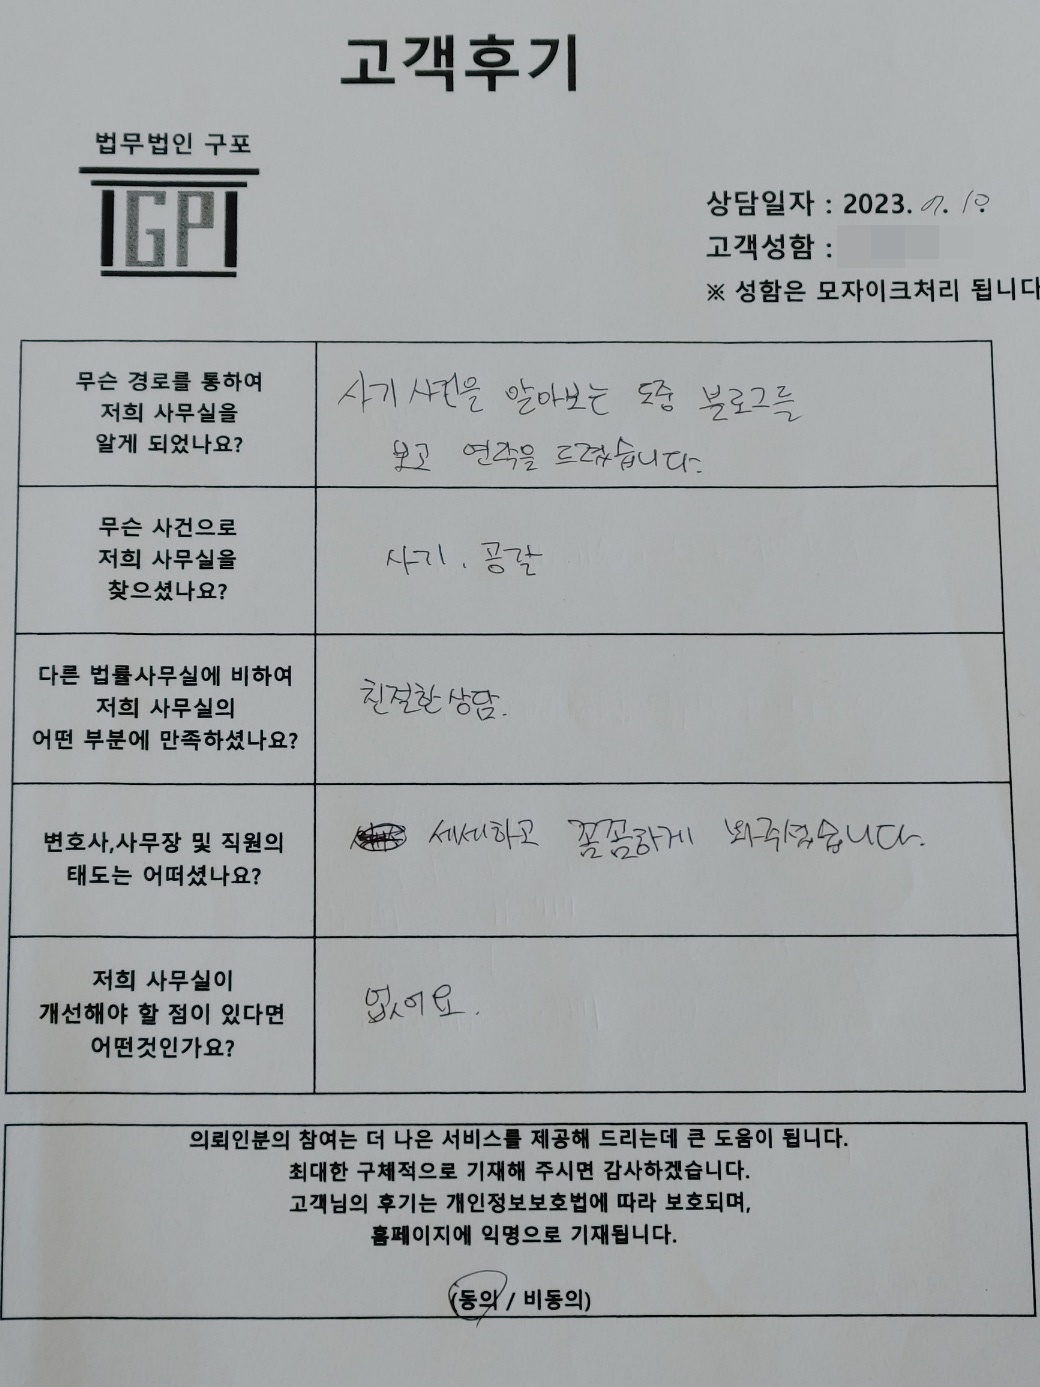 고객후기
법무법인 구포
GP
상담일자 : 2023. 7. 10.
고객성함 :
※ 성함은 모자이크처리 됩니다
무슨 경로를 통하여
저희 사무실을
알게 되었나요?
사기 사건을 알아보는 도중 블로그를
보고 연락을 드렸습니다.
무슨 사건으로
저희 사무실을
찾으셨나요?
사기, 공갈
다른 법률사무실에 비하여
저희 사무실의
어떤 부분에 만족하셨나요?
친절한 상담.
변호사,사무장 및 직원의
태도는 어떠셨나요?
세세하고 꼼꼼하게 봐주셨습니다.
저희 사무실이
개선해야 할 점이 있다면
어떤것인가요?
없어요.
의뢰인분의 참여는 더 나은 서비스를 제공해 드리는데 큰 도움이 됩니다.
최대한 구체적으로 기재해 주시면 감사하겠습니다.
고객님의 후기는 개인정보보호법에 따라 보호되며,
홈페이지에 익명으로 기재됩니다.
(동의 / 비동의)